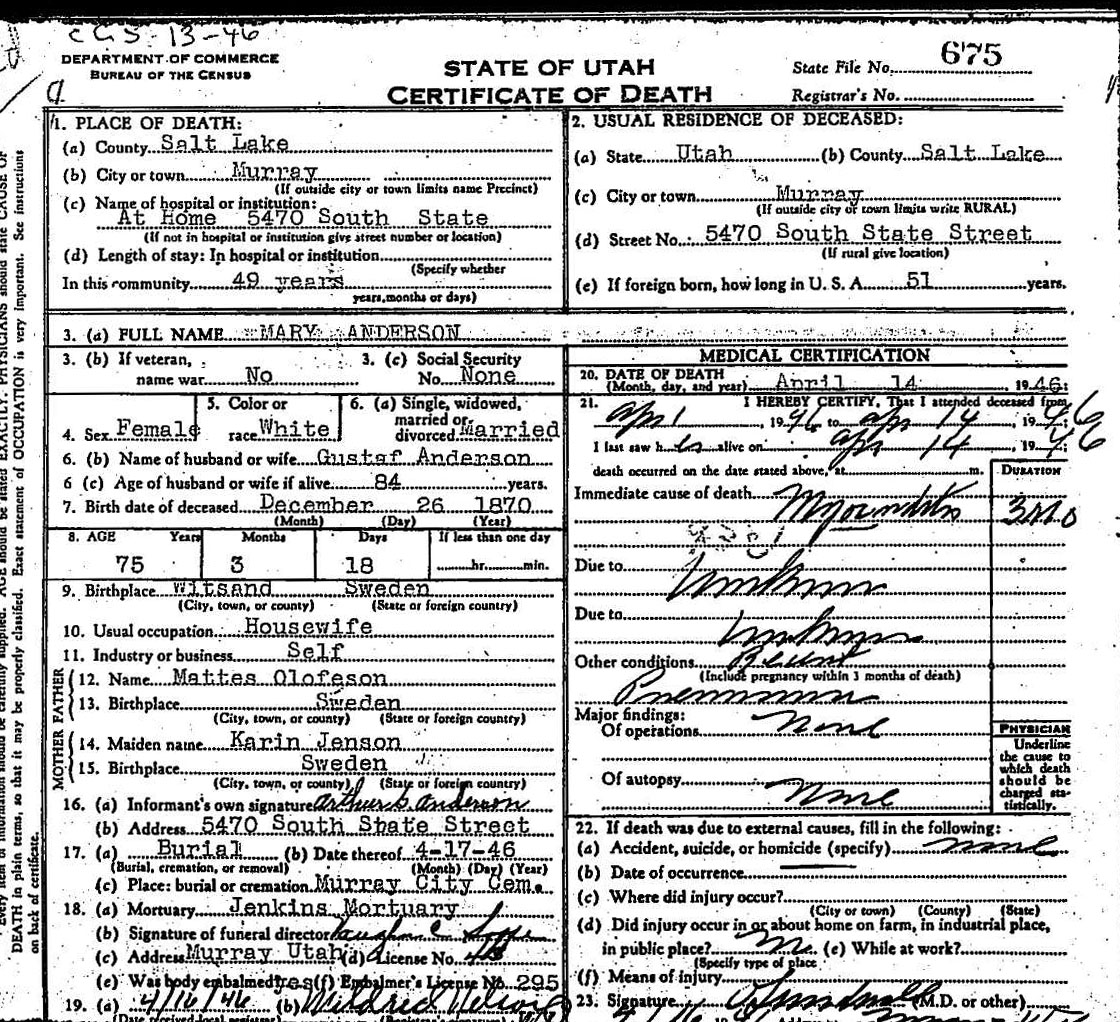 CGS-13-46
DEPARTMENT OF COMMERCE
BUREAU OF THE CENSUS
STATE OF UTAH
CERTIFICATE OF DEATH
State File No. 675
Registrar's No.
1. PLACE OF DEATH:
(a) County Salt Lake
(b) City or town Murray
(If outside city or town limits name Precinct)
(c) Name of hospital or institution:
At Home 5470 South State
(If not in hospital or institution give street number or location)
(d) Length of stay: In hospital or institution
(Specify whether
In this community 49 years
years, months or days)
2. USUAL RESIDENCE OF DECEASED:
(a) State Utah (b) County Salt Lake
(c) City or town Murray
(If outside city or town limits write RURAL)
(d) Street No. 5470 South State Street
(If rural give location)
(e) If foreign born, how long in U. S. A. 51 years.
3. (a) FULL NAME MARY ANDERSON
3. (b) If veteran, name war No
3. (c) Social Security No. None
4. Sex Female
5. Color or race White
6. (a) Single, widowed, married or divorced Married
6. (b) Name of husband or wife Gustaf Anderson
6 (c) Age of husband or wife if alive 84 years.
7. Birth date of deceased December 26 1870
(Month) (Day) (Year)
8. AGE Years Months Days If less than one day
75 3 18 hr. min.
9. Birthplace Witsand Sweden
(City, town, or county) (State or foreign country)
10. Usual occupation Housewife
11. Industry or business Self
FATHER
12. Name Mattes Olofeson
13. Birthplace Sweden
(City, town, or county) (State or foreign country)
MOTHER
14. Maiden name Karin Jenson
15. Birthplace Sweden
(City, town, or county) (State or foreign country)
16. (a) Informant's own signature Arthur G. Anderson
(b) Address 5470 South State Street
17. (a) Burial (b) Date thereof 4-17-46
(Burial, cremation, or removal) (Month) (Day) (Year)
(c) Place: burial or cremation Murray City Cem.
18. (a) Mortuary Jenkins Mortuary
(b) Signature of funeral director Vaughn C.
(c) Address Murray Utah (d) License No.
(e) Was body embalmed yes (f) Embalmer's License No. 295
19. (a) 4/16/46 (b) Mildred Nelson
(Date received local registrar) (Registrar's signature)
MEDICAL CERTIFICATION
20. DATE OF DEATH
(Month, day, and year) April 14 1946
21. I HEREBY CERTIFY, That I attended deceased from
Apr 1, 1946 to Apr 14, 1946
I last saw h es alive on Apr 14 1946
death occurred on the date stated above, at m.
DURATION
Immediate cause of death 3 mo
Due to Unknown
Due to Unknown
Other conditions Recent
(Include pregnancy within 3 months of death)
Pneumonia
Major findings:
Of operations None
Of autopsy None
PHYSICIAN
Underline the cause to which death should be charged statistically.
22. If death was due to external causes, fill in the following:
(a) Accident, suicide, or homicide (specify) none
(b) Date of occurrence
(c) Where did injury occur?
(City or town) (County) (State)
(d) Did injury occur in or about home on farm, in industrial place,
in public place? No (e) While at work?
(Specify type of place
(f) Means of injury
23. Signature (M.D. or other)
4/16
Every item of information should be carefully supplied. AGE should be stated EXACTLY. PHYSICIANS should state CAUSE OF
DEATH in plain terms, so that it may be properly classified. Exact statement of OCCUPATION is very important. See instructions
on back of certificate.